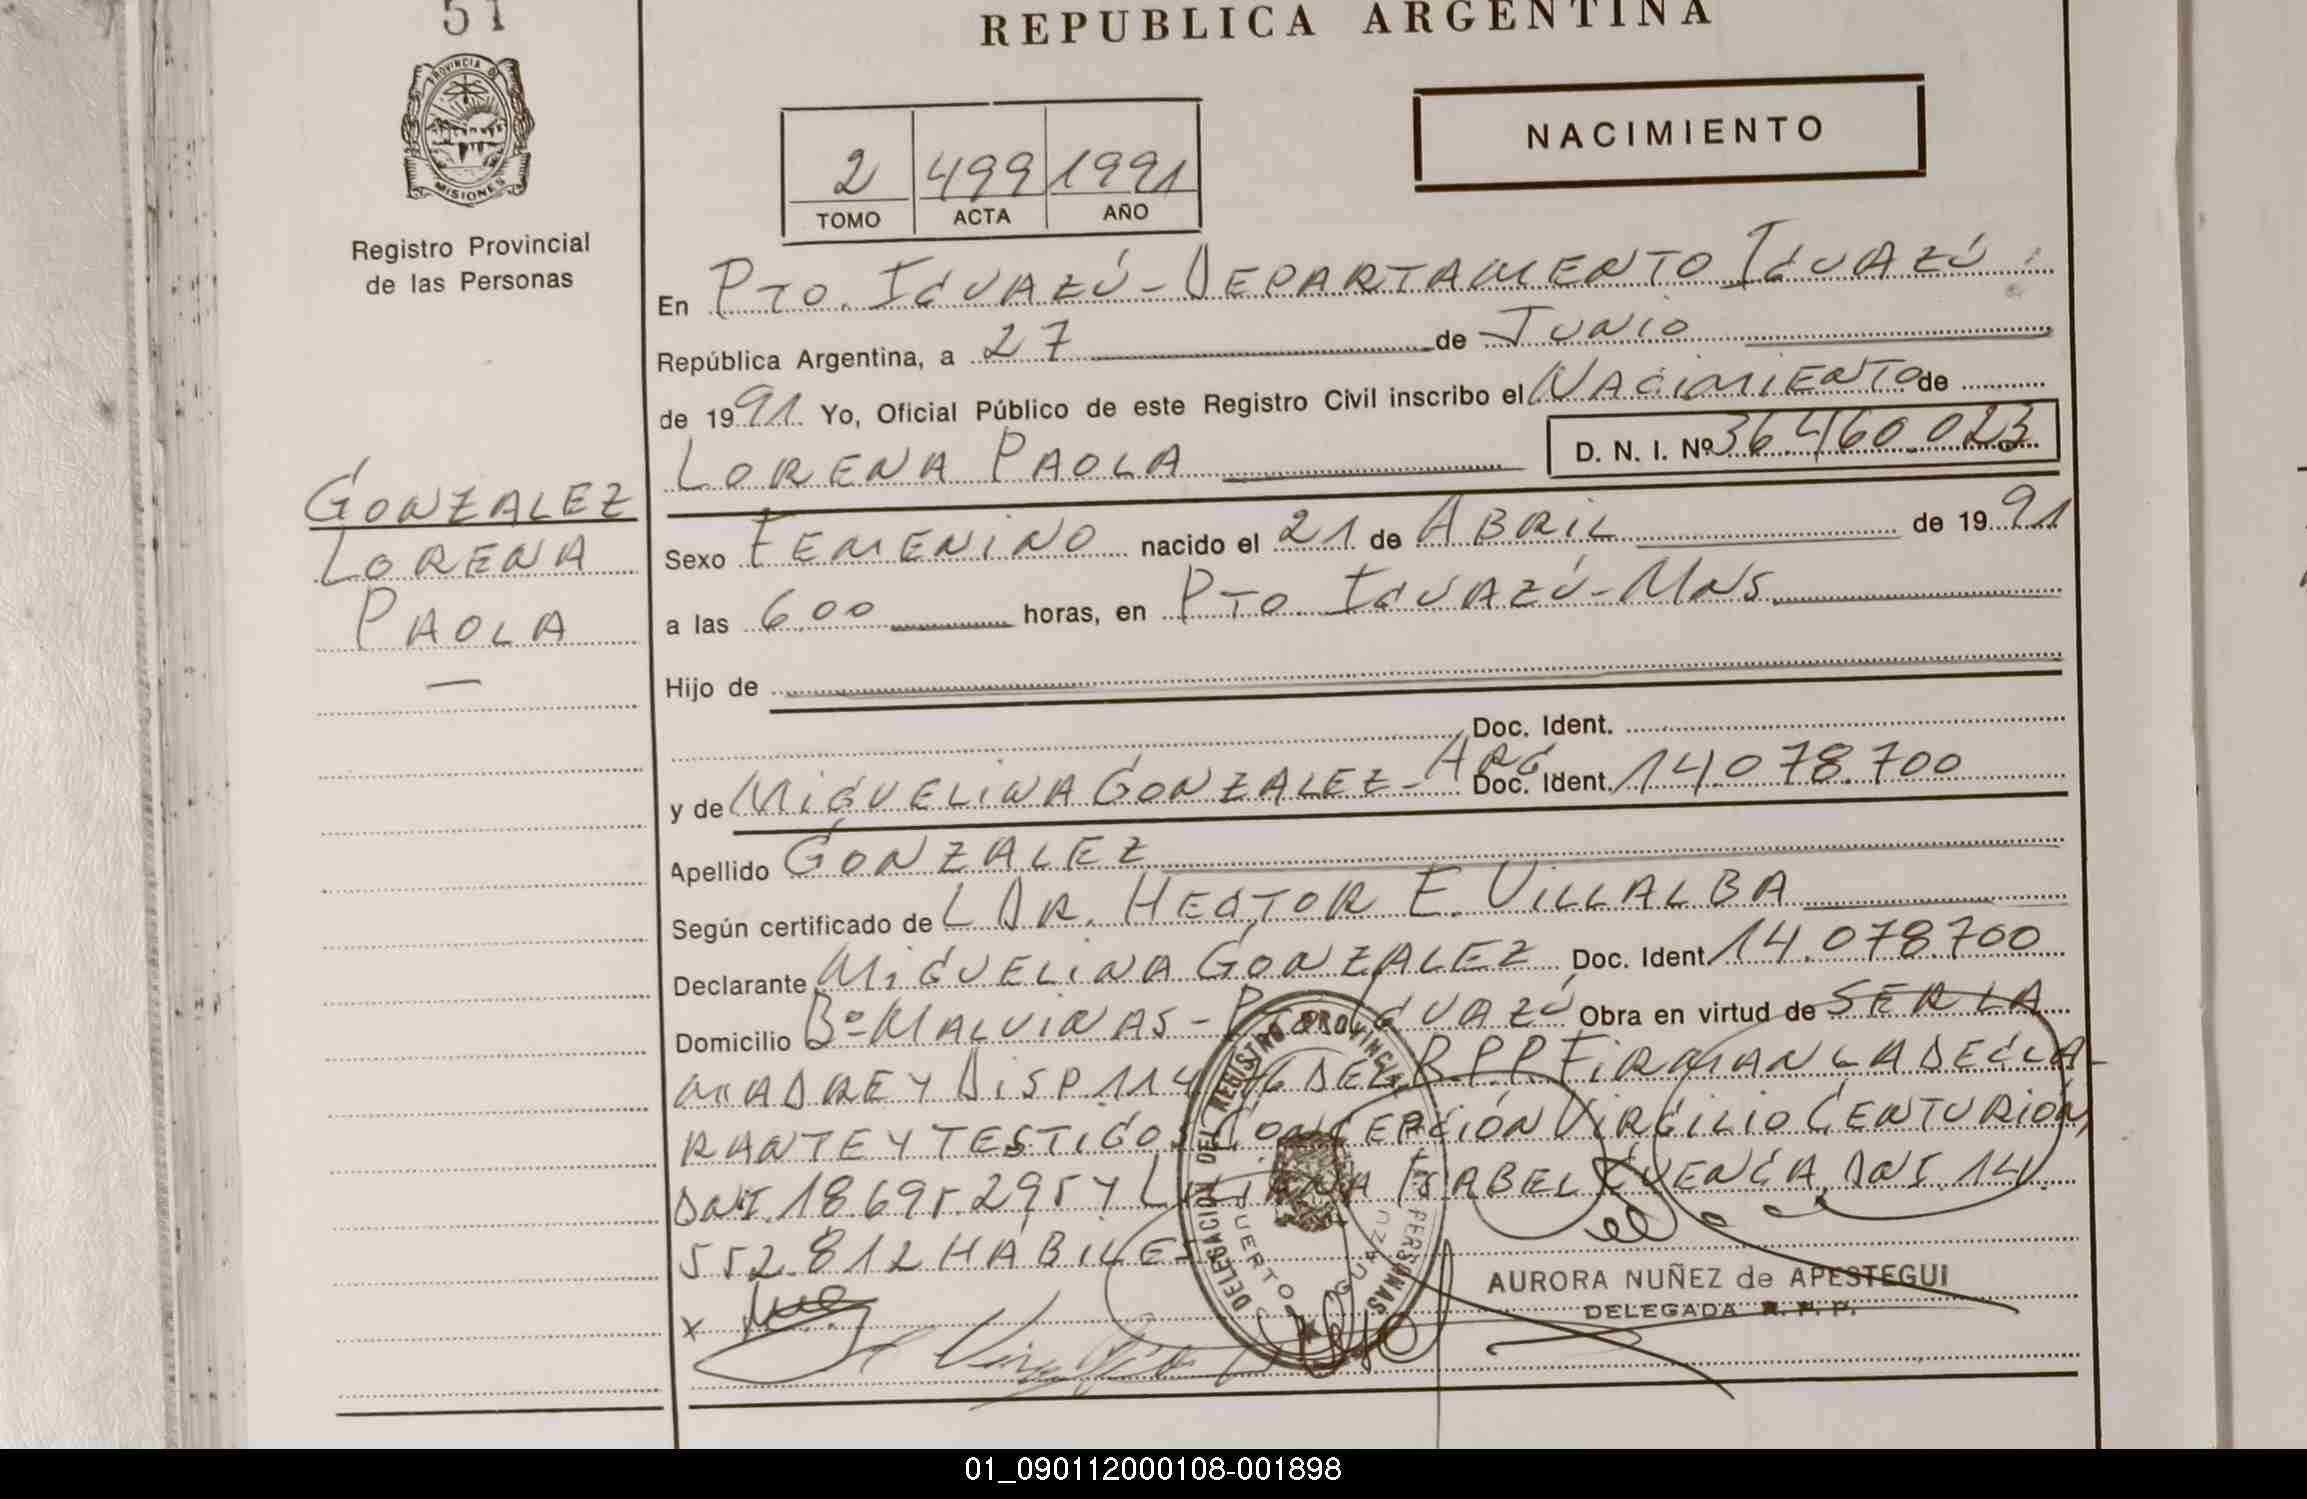 51
REPUBLICA ARGENTINA
PROVINCIA DE
MISIONES
Registro Provincial
de las Personas
NACIMIENTO
2 499 1991
TOMO ACTA AÑO
En PTO. IGUAZÚ - DEPARTAMENTO IGUAZÚ
República Argentina, a 27 de JUNIO
de 1991 Yo, Oficial Público de este Registro Civil inscribo el NACIMIENTO de
LORENA PAOLA D. N. I. Nº 36.460.023
GONZALEZ
LORENA
PAOLA
Sexo FEMENINO nacido el 21 de ABRIL de 1991
a las 6.00 horas, en PTO. IGUAZÚ - MNS.
Hijo de
Doc. Ident.
y de MIGUELINA GONZALEZ - ARG Doc. Ident. 14.078.700
Apellido GONZALEZ
Según certificado de L DR. HECTOR E. VILLALBA
Declarante MIGUELINA GONZALEZ Doc. Ident. 14.078.700
Domicilio Bº MALVINAS - PTO IGUAZÚ Obra en virtud de SER LA
MADRE Y DISP. 114 DEL R.P.P. FIRMAN LA DECLA-
RANTE Y TESTIGOS CONCEPCIÓN VIRGILIO CENTURIÓN,
DNI. 18.695.295 Y LILIANA ISABEL CUENCA, DNI. 14.
552.812 HABILES
DELEGACION DEL REGISTRO PROVINCIAL DE LAS PERSONAS
PUERTO IGUAZU
AURORA NUÑEZ de APESTEGUI
DELEGADA R. P. P.
x
01_090112000108-001898